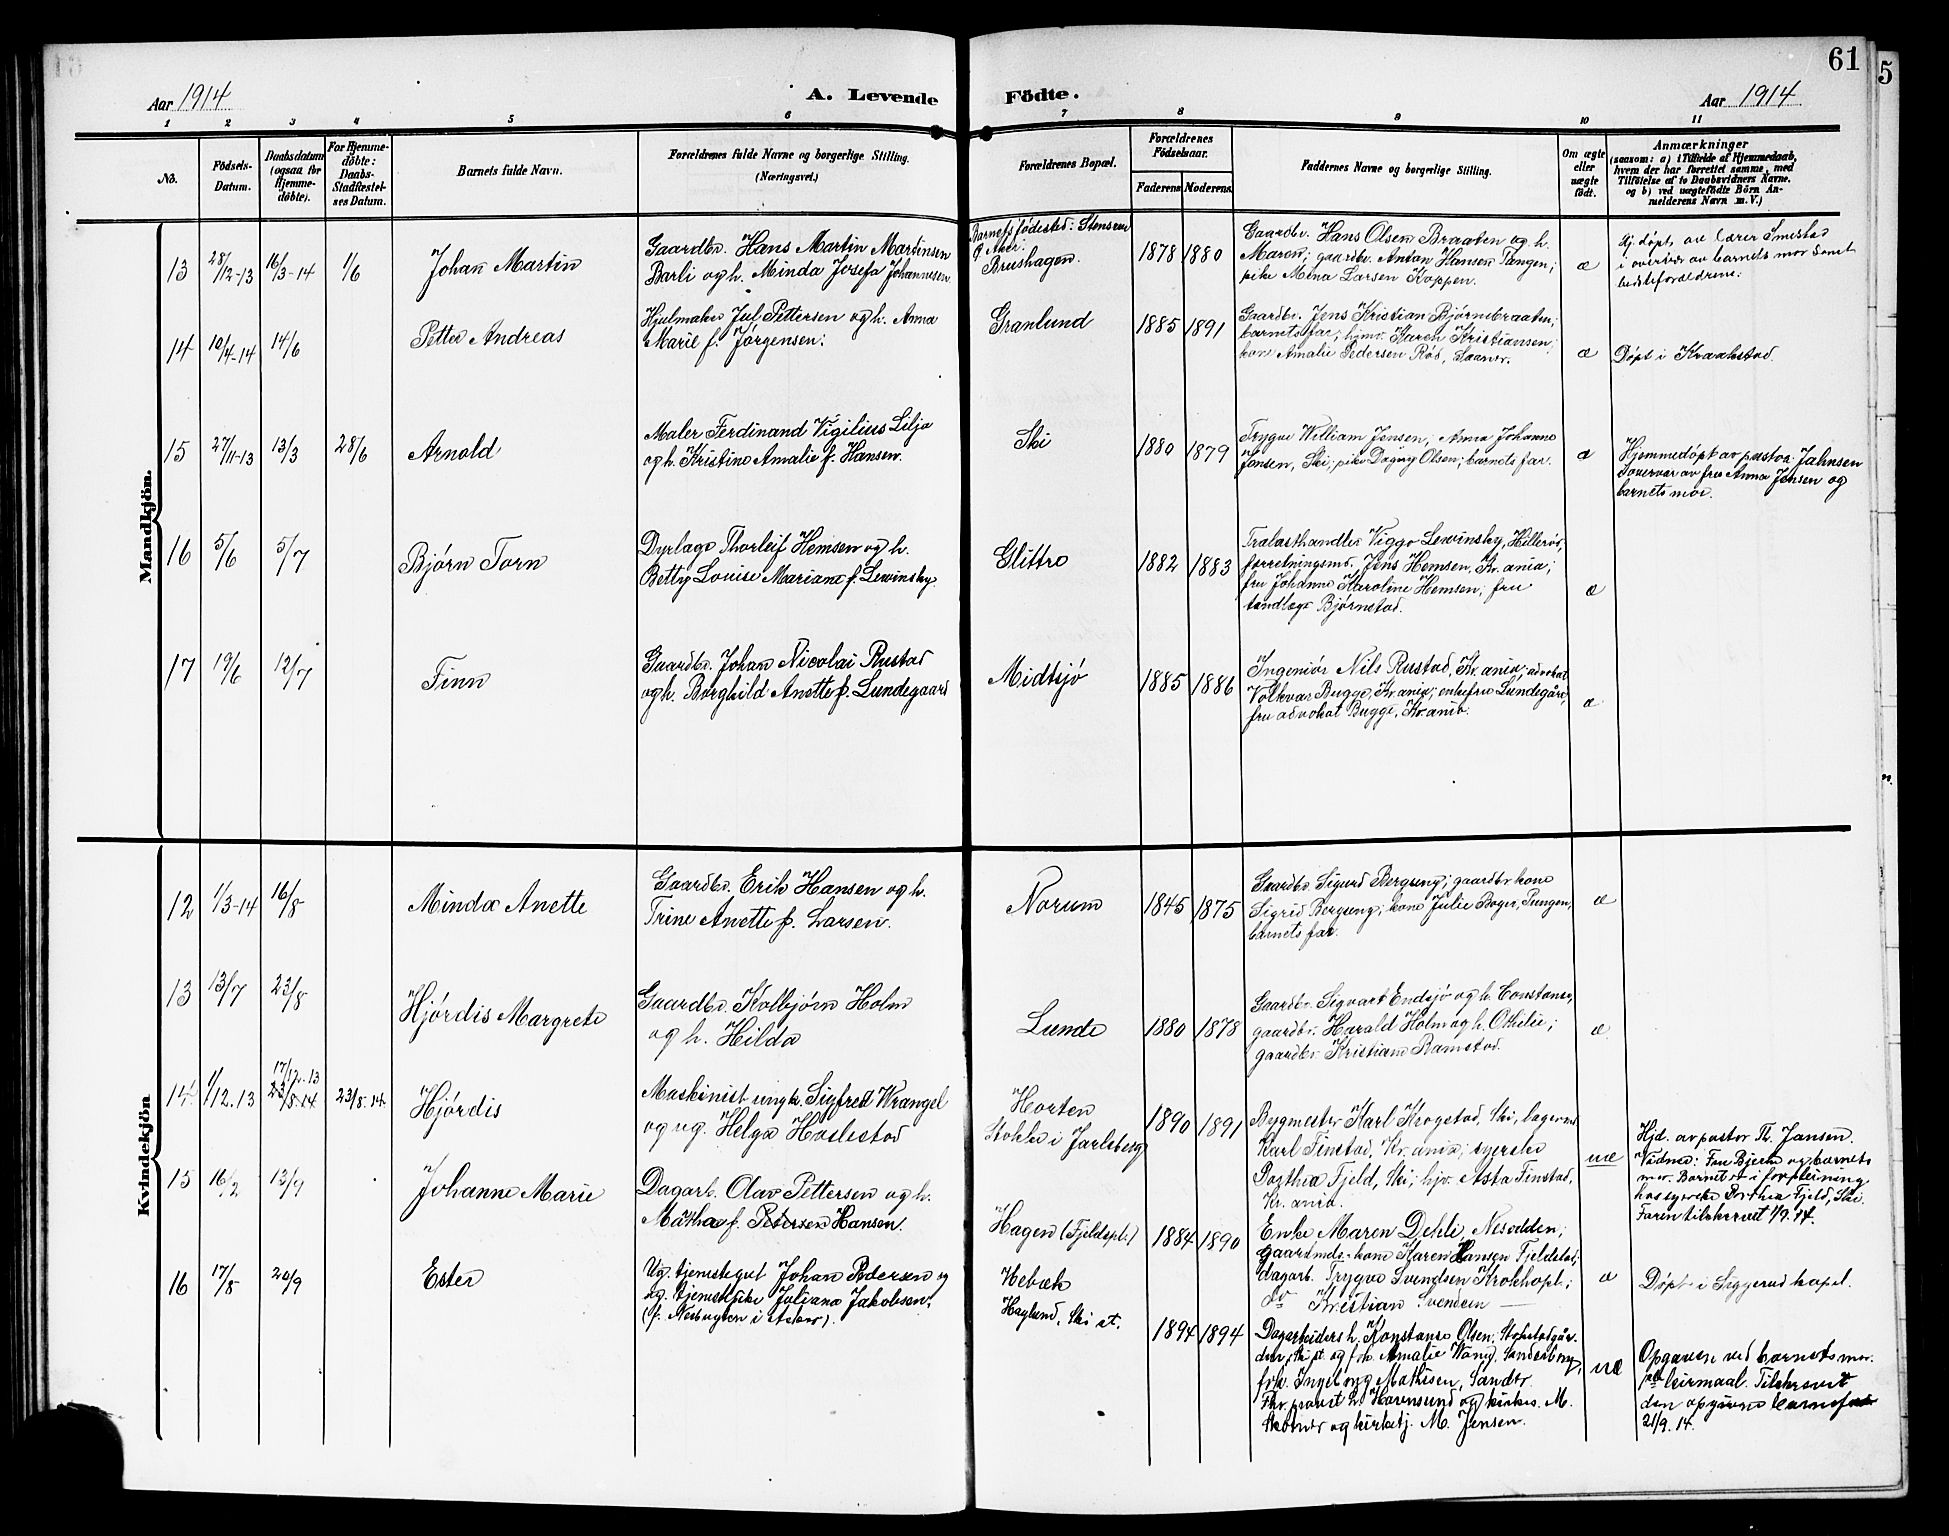 Aar 1914
A. Levende Födte.
Aar 1914
61
5
1 2 3 4 5 6 7 8 9 10 11
No.
Födsels-
Datum.
Daabsdatum
(ogsaa for
Hjemme-
döbte).
For Hjemme-
döbte:
Daabs-
Stadfæstel-
ses Datum.
Barnets fulde Navn.
Forældrenes fulde Navne og borgerlige Stilling.
(Næringsvei.)
Forældrenes Bopæl.
Forældrenes
Födselsaar.
Faderens Moderens
Faddernes Navne og borgerlige Stilling.
Om ægte
eller
uægte
födt.
Anmærkninger
(saasom: a) i Tilfælde af Hjemmedaab,
hvem der har forrettet samme, med
Tilföielse af to Daabsvidners Navne.
og b) ved uægtefödte Börn An-
melderens Navn m. V.)
Mandkjön.
13
28/12-13
16/3-14
1/6
Johan Martin
Gaardbr. Hans Martin Martinsen
Barli og h. Minda Josefa Johannesen
Barnets fødested: Stensrud
Brushagen.
1878 1880
Gaardbr. Hans Olsen Braaten og h.
Maren; gaardbr. Anton Hansen Tangen;
pike Mina Larsen Koppen.
æ
Hj. døpt av lærer Smestad
i overvær av barnets mor samt
bedsteforældrene.
14
10/4-14
14/6
Petter Andreas
Hjulmaker Jul Pettersen og h. Anna
Marie f. Jørgensen.
Granlund
1885 1891
Gaardbr. Jens Kristian Bjørnebraaten;
barnets far; hjmv. Karen Kristiansen;
kone Amalie Pedersen Rød, Saaner.
æ
Døpt i Kraakstad.
15
27/11-13
13/3
28/6
Arnold
Maler Ferdinand Vigilius Lilja
og h. Kristine Amalie f. Hansen.
Ski
1880 1879
Trygve William Jensen; Anna Johanne
Jensen, Ski; pike Dagny Olsen; barnets far.
æ
Hjemmedøpt av pastor Jahnsen
i overvær av fru Anna Jensen og
barnets mor.
16
5/6
5/7
Bjørn Torn
Dyrlæge Thorleif Hemsen og h.
Betty Louise Mariane f. Lewinsky.
Glittre
1882 1883
Tralasthandler Viggo Lewinsky, Hillerød;
forretningsmd. Jens Hemsen, Kr.ania;
fru Johanne Karoline Hemsen; fru
tandlæge Bjørnstad.
æ
17
19/6
12/7
Finn
Gaardbr. Johan Nicolai Rustad
og h. Borghild Anette f. Lundegaard
Midtsjø
1885 1886
Ingeniør Nils Rustad, Kr.ania; advokat
Volkvar Bugge, Kr.ania; enkefru Lundegård,
fru advokat Bugge, Kr.ania.
æ
Kvindekjön
12
1/3-14
16/8
Minda Anette
Gaardbr. Erik Hansen og h.
Trine Anette f. Larsen.
Norum
1845 1875
Gaardbr. Sigurd Bergseng; gaardbr.kone
Sigrid Bergseng; kone Julie Boger, Tangen;
barnets far.
æ
13
13/7
23/8
Hjørdis Margrete
Gaardbr. Kolbjørn Holm
og h. Hilda
Lunde
1880 1878
Gaardbr. Sigvart Endsjø og h. Constanse,
gaardbr. Harald Holm og h. Othilie;
gaardbr. Kristian Ramstad.
æ
14
1/12.13
17/12.13
23/8.14
23/8.14
Hjørdis
Maskinist ungk. Sigfred Wrangel
og ug. Helga Haslestad
Horten
Stokke i Jarlsberg
1890 1891
Bygmester Karl Krogstad, Ski; lagermd.
Karl Finstad, Kr.ania; syerske
Porthea Fjeld, Ski; hjv. Asta Finstad,
Kr.ania.
uæ
Hjd. av pastor Th. Jansen.
Vidner: Fru Bjerke og barnets
mor. Barnet er i forpleining
hos syerske Porthea Fjeld, Ski
Faren tilskrevet 1/9.14.
15
16/2
13/9
Johanne Marie
Dagarb. Olav Pettersen og h.
Mathea f. Petersen Hansen.
Hagen (Fjeldspl.)
1884 1890
Enke Maren Dehli, Nesodden;
gaardmds.kone Karen Hansen Fjeldstad;
dagarb. Trygve Svendsen Krokhopl.;
do Kristian Svendsen
æ
Døpt i Siggerud kapel.
16
17/8
20/9
Ester
Ug. tjenestegut Johan Pedersen og
ug. tjenestepike Juliane Jakobsen.
(f. Nesbugten i Asker).
Hebæk
Haglund, Ski st.
1894 1894
Dagarbeiders h. Konstanse Olsen,
den, Ski st. og frk. Amalie Wang,
frk. Ingeborg Mathisen, Sander.
og kirketj. M. Jensen.
uæ
Opgaven ved barnets mor.
leiermaal. Tilskrevet
den opgivne barnefar
21/9.14.